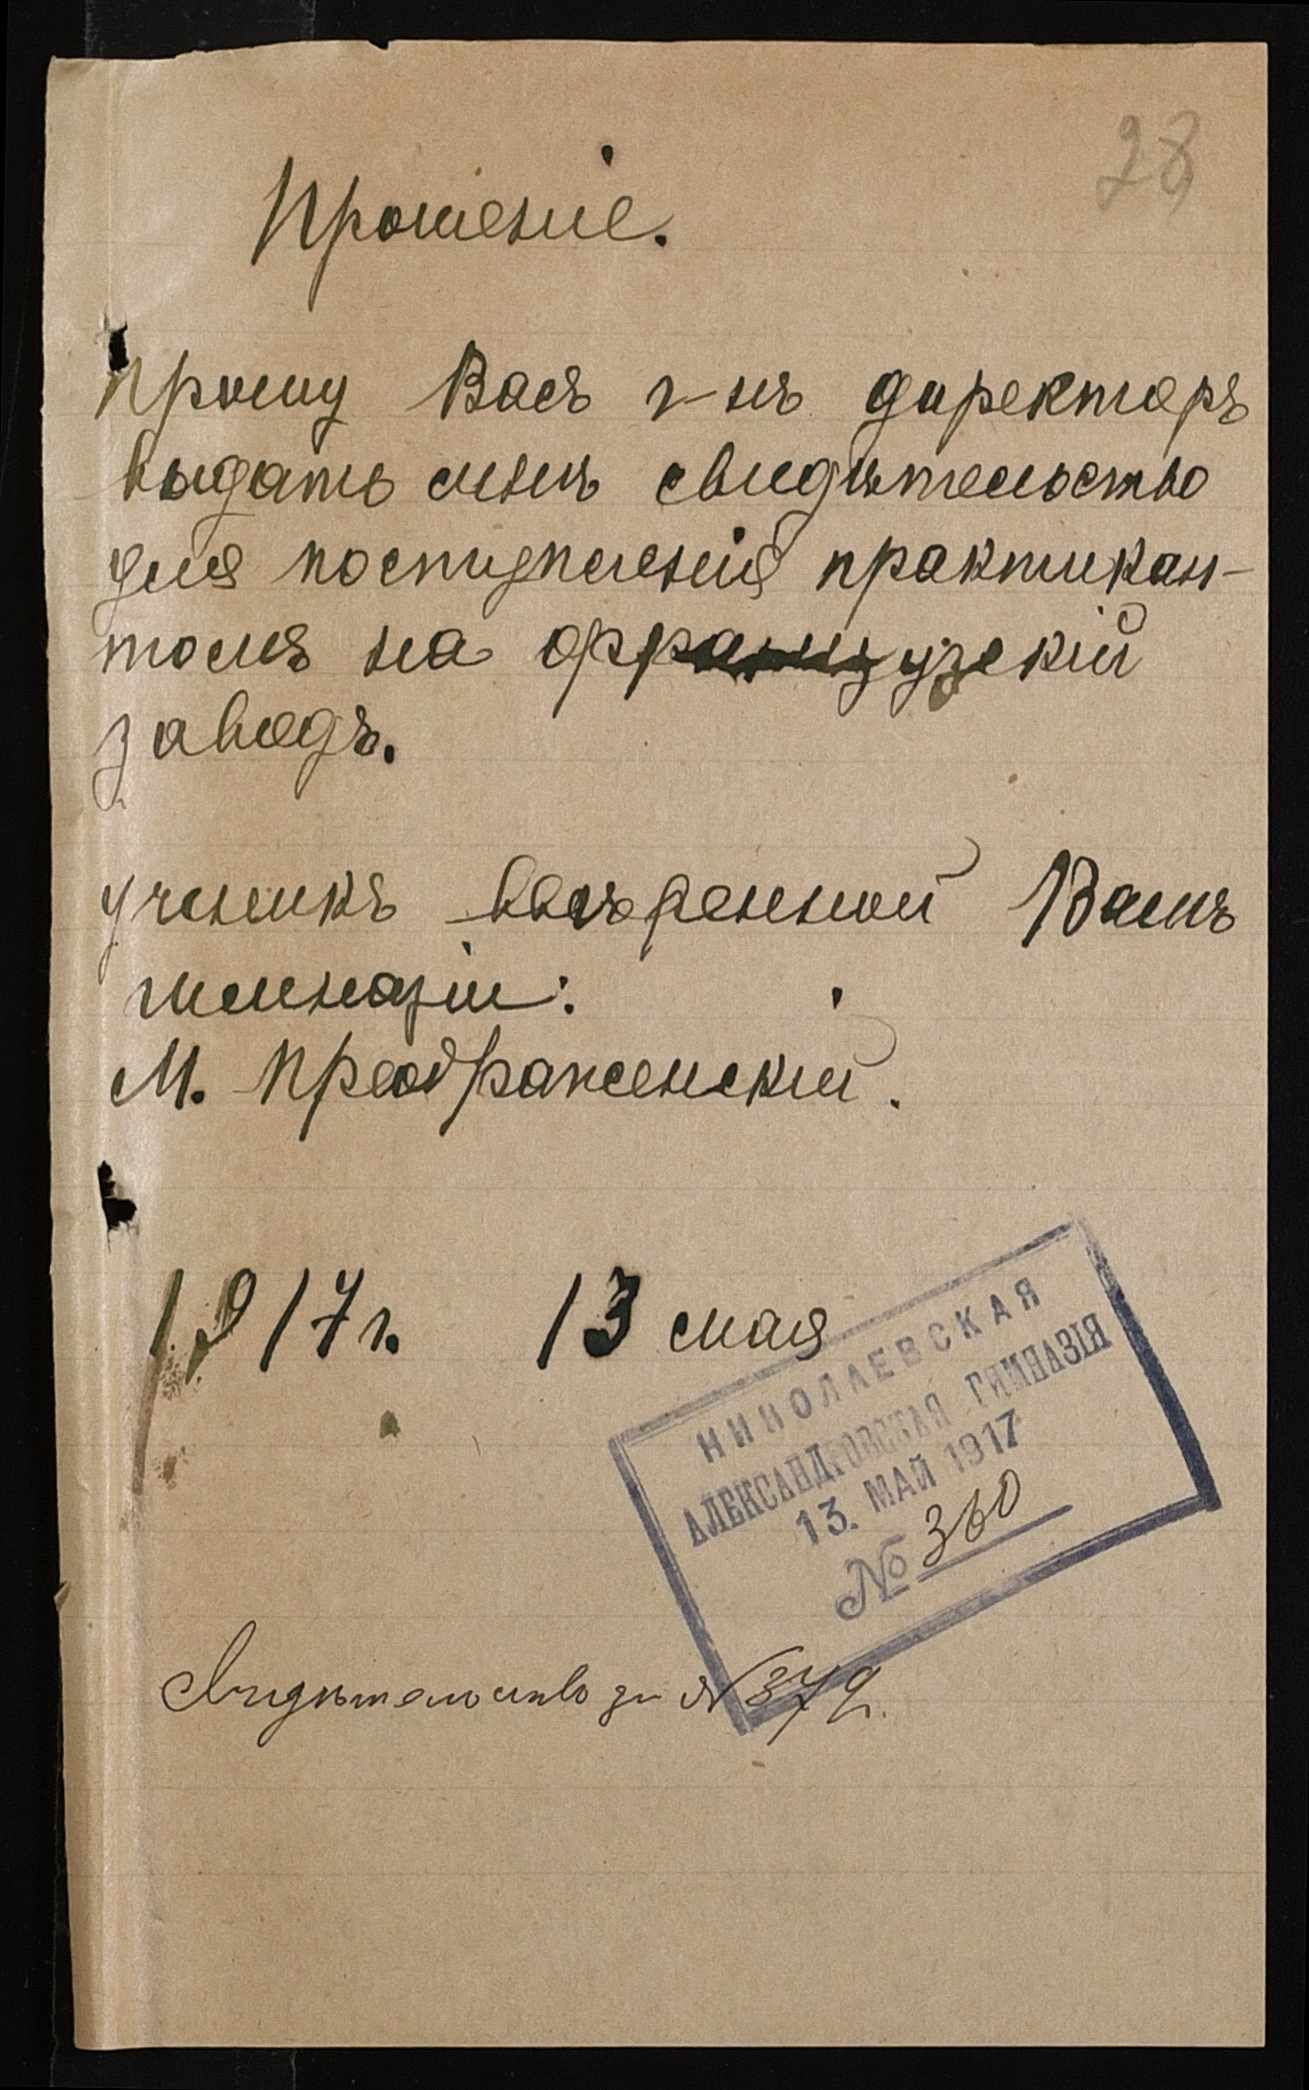 28
Прошеніе.
Прошу Васъ г-нъ директоръ
выдать мнѣ свидѣтельство
для поступленія практикан-
томъ на французскій
заводъ.
ученикъ ввѣренной Вамъ
гимназіи:
М. Преображенскій.
1917 г. 13 мая
НИКОЛАЕВСКАЯ
АЛЕКСАНДРОВСКАЯ ГИМНАЗІЯ
13. МАЙ 1917
№ 360
Свидѣтельство за №379.